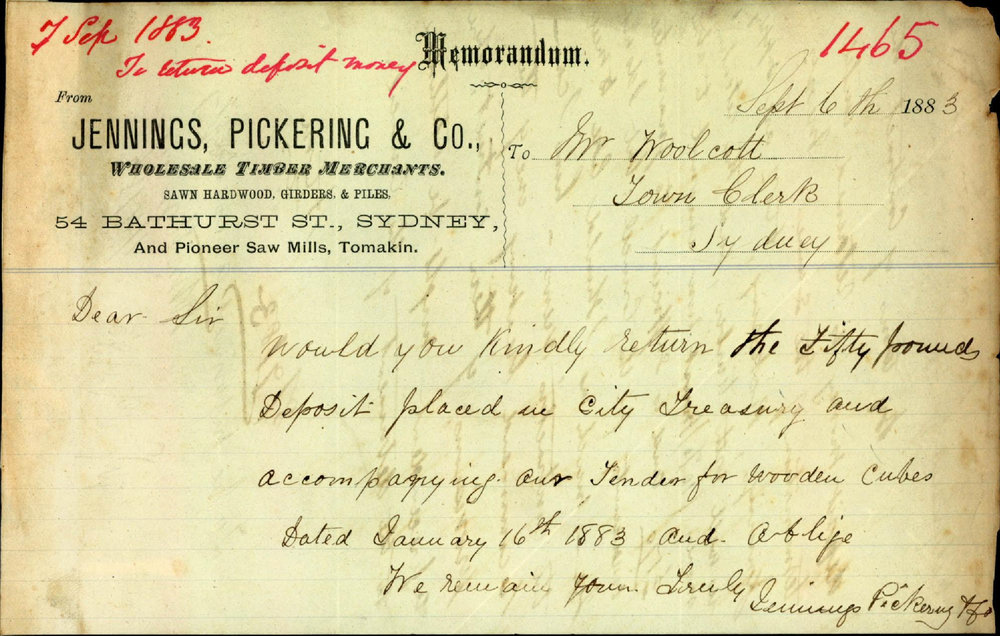 7 Sep 1883.
To return deposit money
Memorandum.
1465
Sept 6th 1883
From
JENNINGS, PICKERING & Co.,
WHOLESALE TIMBER MERCHANTS.
SAWN HARDWOOD, GIRDERS, & PILES,
54 BATHURST ST., SYDNEY,
And Pioneer Saw Mills, Tomakin.
To Mr Woolcott
Town Clerk
Sydney
Dear Sir
Would you Kindly return the Fifty pounds
Deposit placed in City Treasury and
accompanying our Tender for Wooden Cubes
Dated January 16th 1883 and Oblige
We remain Yours Truly
Jennings Pickering & Co